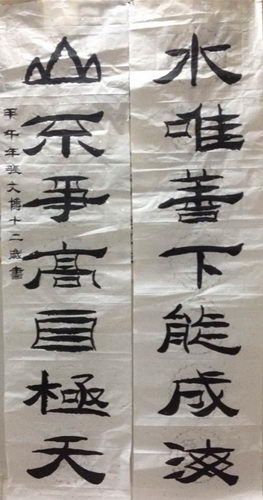 水唯善下能成海
山不爭高自極天
甲午年裴文博十二歲書